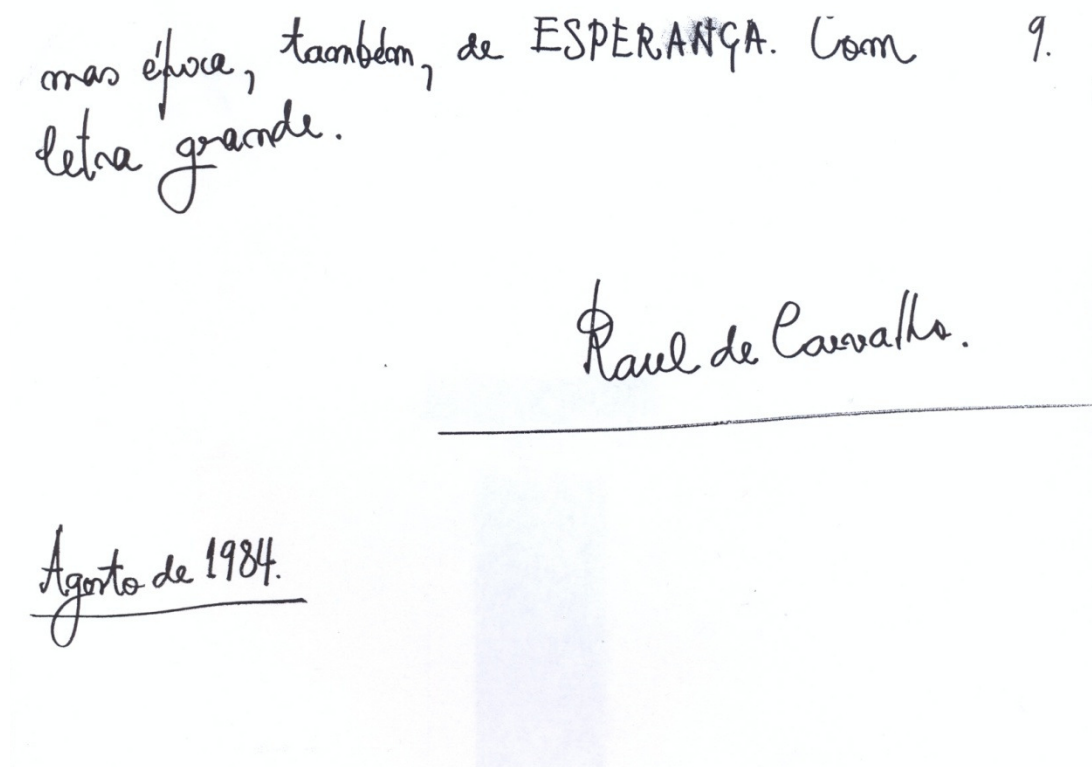 mas época, também, de ESPERANÇA. Com 9.
letra grande.
Raul de Carvalho.
Agosto de 1984.